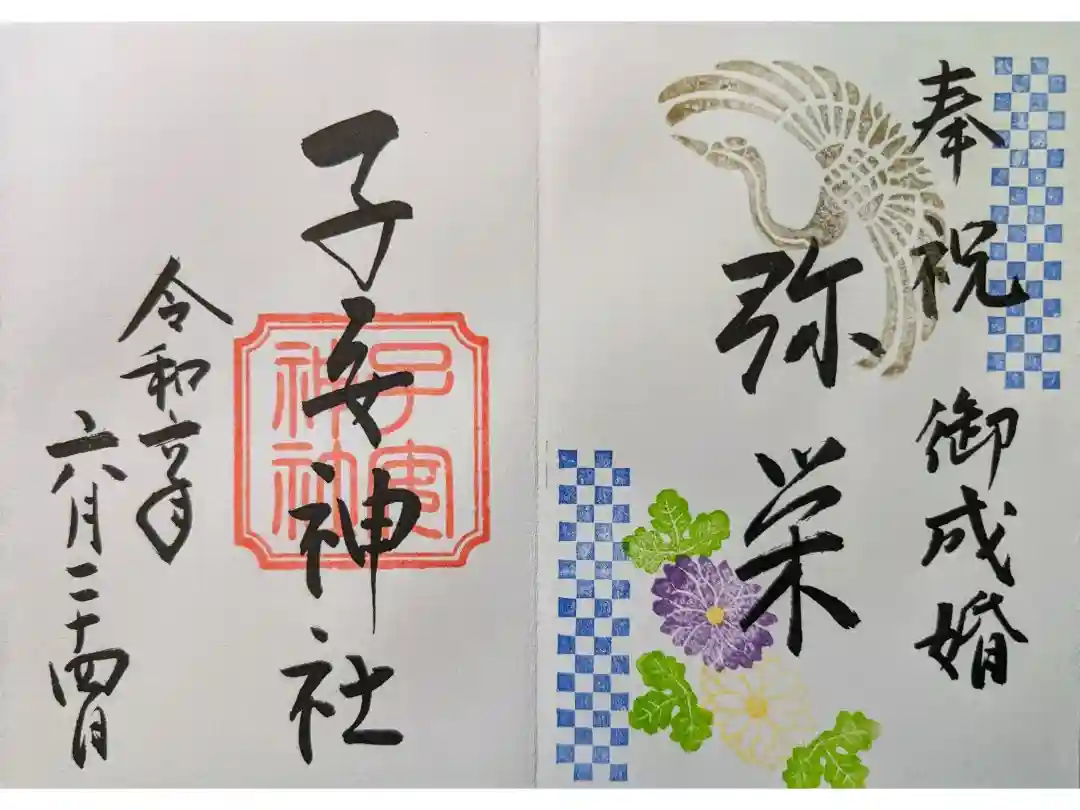 奉祝 御成婚
弥栄
子安神社
子安神社
令和六年
六月二十四日